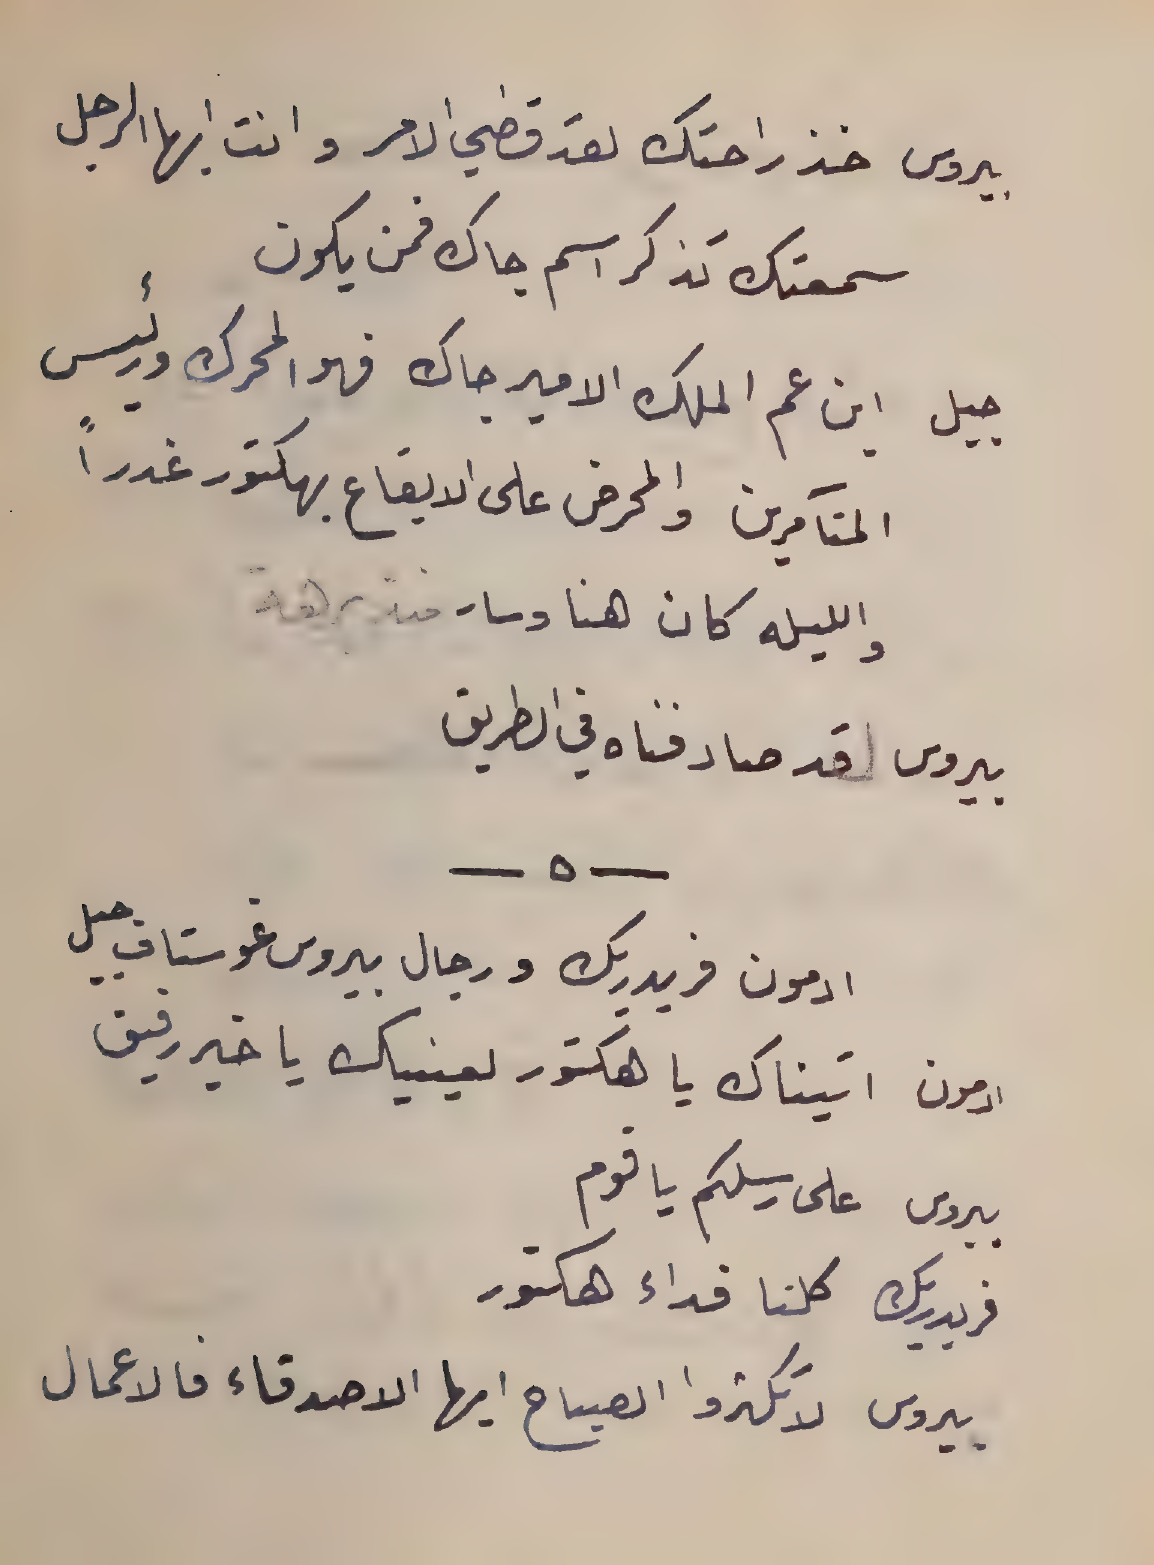 بيروس خذ راحتك لقد قضي الامر وانت ايها الرجل
سمعتك تذكر اسم جاك فمن يكون
جيل ابن عم الملك الامير جاك فهو المحرك ورئيس
المتآمرين والمحرض على الايقاع بهكتور غدراً
والليله كان هنا وسار منذ برهة
بيروس لقد صادفناه في الطريق
— ٥ —
ادمون فريدريك ورجال بيروس غوستاف جيل
ادمون اتيناك يا هكتور لعينيك يا خير رفيق
بيروس على رسلكم يا قوم
فريدريك كلنا فداء هكتور
بيروس لا تكثروا الصياح ايها الاصدقاء فالاعمال